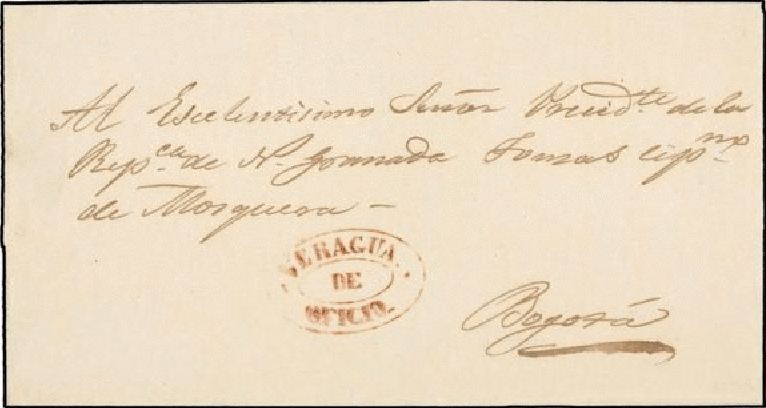 Al Escelentisimo Señor Precid.te de la
Rep.ca de N. Granada Tomas Cip.no
de Mosquera –
VERAGUA.
DE
OFICIO.
Bogotá